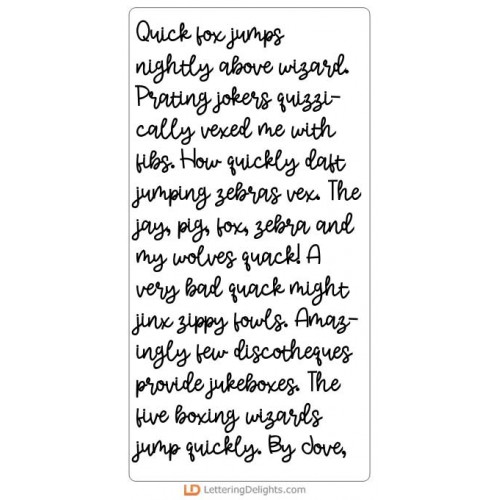 Quick fox jumps
nightly above wizard.
Prating jokers quizzi-
cally vexed me with
fibs. How quickly daft
jumping zebras vex. The
jay, pig, fox, zebra and
my wolves quack! A
very bad quack might
jinx zippy fowls. Amaz-
ingly few discotheques
provide jukeboxes. The
five boxing wizards
jump quickly. By Jove,
LD LetteringDelights.com